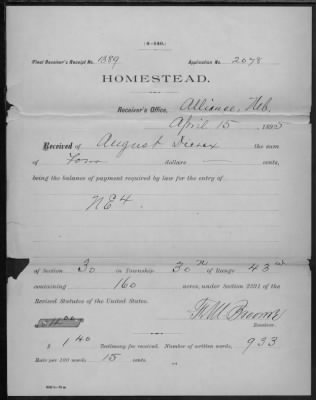 (4—140.)
Final Receiver's Receipt No. 1389 Application No. 2078
HOMESTEAD.
Receiver's Office, Alliance, Neb.
April 15, 1895
Received of August the sum
of Four dollars — cents,
being the balance of payment required by law for the entry of
NE4.
of Section 30 in Township 30 N of Range 43 W
containing 160 acres, under Section 2291 of the
Revised Statutes of the United States.
F. M. Broome
Receiver.
$ 1.40 Testimony fee received. Number of written words, 933
Rate per 100 words 15 cents.